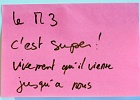 Le M3
c'est super!
Vivement qu'il vienne
jusqu'à nous